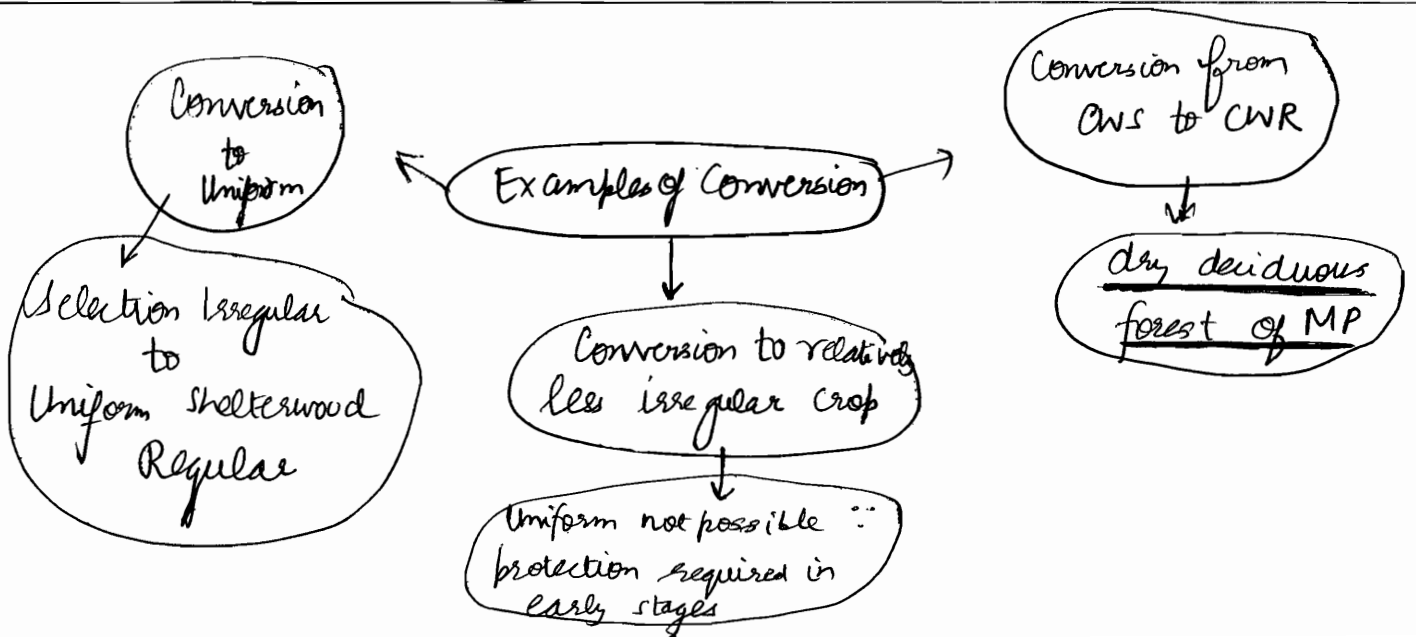 Examples of Conversion
Conversion
to
Uniform
Selection Irregular
to
Uniform Shelterwood
Regular
Conversion to relatively
less irregular crop
Uniform not possible ∵
protection required in
early stages
Conversion from
CWS to CWR
dry deciduous
forest of MP